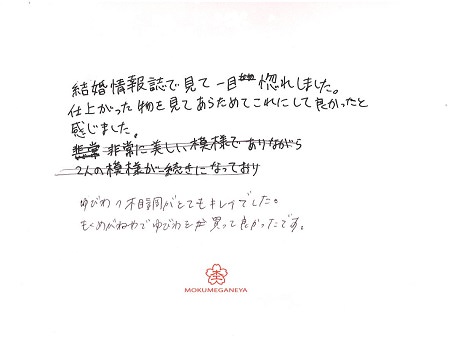 結婚情報誌で見て一目惚れしました。
仕上がった物を見てあらためてこれにして良かったと
感じました。
非常 非常に美しい模様でありながら
2人の模様が続きになっており
ゆびわの木目調がとてもキレイでした。
もくめがねやでゆびわを買って良かったです。
MOKUMEGANEYA